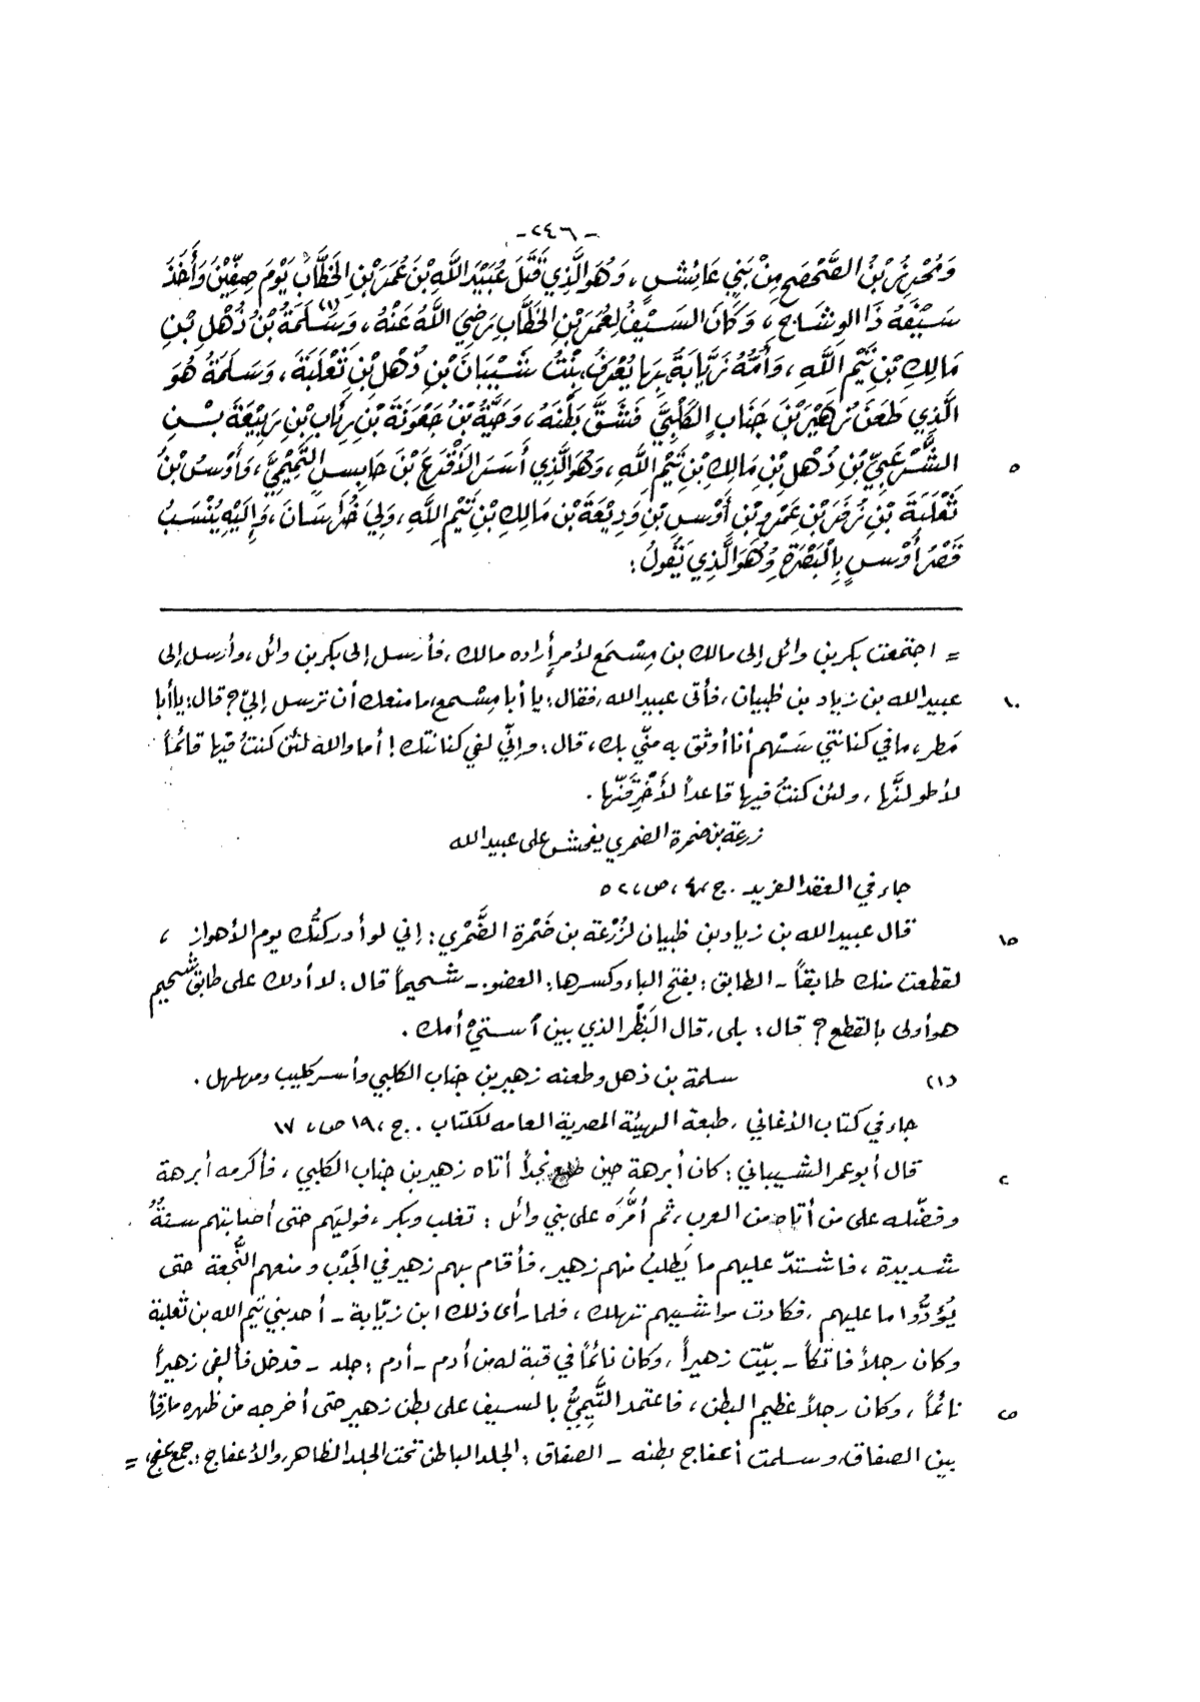 -٢٤٦-
وَمُحْرِزُ بْنُ الصَّحْصَحِ مِنْ بَنِي عَائِشٍ، وَهُوَ الَّذِي قَتَلَ عُبَيْدَ اللَّهِ بْنَ عُمَرَ بْنِ الخَطَّابِ يَوْمَ صِفِّيْنَ وَأَخَذَ
سَيْفَهُ ذَا الوِشَاحِ، وَكَانَ السَيْفُ لِعُمَرَ بْنِ الخَطَّابِ رَضِيَ اللَّهُ عَنْهُ، وَسَلَمَةُ بْنُ ذُهْلِ بْنِ (١)
مَالِكِ بْنِ تَيْمِ اللَّهِ، وَأُمُّهُ زَيَّابَةُ بِهَا يُعْرَفُ بِنْتُ شَيْبَانَ بْنِ ذُهْلِ بْنِ ثَعْلَبَةَ، وَسَلَمَةُ هُوَ
الَّذِي طَعَنَ زُهَيْرَ بْنَ جَنَابٍ الكَلْبِيَّ فَشَقَّ بَطْنَهُ، وَحَيَّةُ بْنُ جَعْوَنَةَ بْنِ رِئَابِ بْنِ رَبِيْعَةَ بْنِ
الشَّرْعَبِيِّ بْنِ ذُهْلِ بْنِ مَالِكِ بْنِ تَيْمِ اللَّهِ، وَهُوَ الَّذِي أَسَرَ الأَقْرَعَ بْنَ حَابِسٍ التَّمِيْمِيَّ، وَأَوْسُ بْنُ ٥
ثَعْلَبَةَ بْنِ زُفَرَ بْنِ عَمْرِو بْنِ أَوْسِ بْنِ وَدِيْعَةَ بْنِ مَالِكِ بْنِ تَيْمِ اللَّهِ، وَلِيَ خُرَاسَانَ، وَإِلَيْهِ يُنْسَبُ
قَصْرُ أَوْسٍ بِالْبَصْرَةِ وَهُوَ الَّذِي يَقُولُ:
= اجتمعت بكر بن وائل إلى مالك بن مِسْمَع لأمرٍ أراده مالك، فأرسل إلى بكر بن وائل، وأرسل إلى
عبيد الله بن زياد بن ظبيان، فأتى عبيد الله، فقال: يا أبا مِسْمع، ما منعك أن ترسل إليّ؟ قال: يا أبا ١٠
مَطر، ما في كنانتي سَهْم أنا أوثق به منّي بك، قال: وإنّي لفي كنانتك! أما والله لئن كنتُ فيها قائماً
لأطولنَّها، ولئن كنتُ فيها قاعداً لأَخْرِقَنّها.
زرعة بن ضمرة الضمري يفحش على عبيد الله
جاء في العقد الفريد. ج، ٤، ص، ٥٢
قال عبيد الله بن زياد بن ظبيان لزُرْعة بن ضَمْرة الضَّمْري: إني لو أدركتُك يوم الأهواز، ١٥
لقطعت منك طابقاً - الطابق: بفتح الباء وكسرها: العضو. - شحيماً قال: لا أدلك على طابق شحيم
هو أولى بالقطع؟ قال: بلى، قال البَظْر الذي بين أستيْ أمك.
(١) سلمة بن ذهل وطعنه زهير بن جناب الكلبي وأسر كليب ومهلهل.
جاء في كتاب الأغاني، طبعة الهيئة المصرية العامه للكتاب. ج، ١٩ ص، ١٧
قال أبو عمر الشيباني: كان أبرهة حين طلع نجداً أتاه زهير بن جناب الكلبي، فأكرمه أبرهة ٢
وفضّله على من أتاه من العرب، ثم أمَّرَه على بني وائل: تغلب وبكر، فوليَهم حتى أصابتهم سنةٌ
شديدة، فاشتدّ عليهم ما يَطلبُ منهم زهير، فأقام بهم زهير في الجَدْب ومنعهم النُّجعة حتى
يُؤدُّوا ما عليهم، فكادت مواشيهم تهلك، فلما رأى ذلك ابن زيّابة - أحد بني تيم الله بن ثعلبة
وكان رجلاً فاتكاً - بيّت زهيراً، وكان نائماً في قبة له من أدم - أدم: جلد - فدخل فألفى زهيراً
نائماً، وكان رجلاً عظيم البطن، فاعتمد التَّيميُّ بالسيف على بطن زهير حتى أخرجه من ظهره مارقاً ٢٥
بين الصفاق، وسلمت أعفاج بطنه - الصفاق: الجلد الباطن تحت الجلد الظاهر، والأعفاج: جمع عفج، =